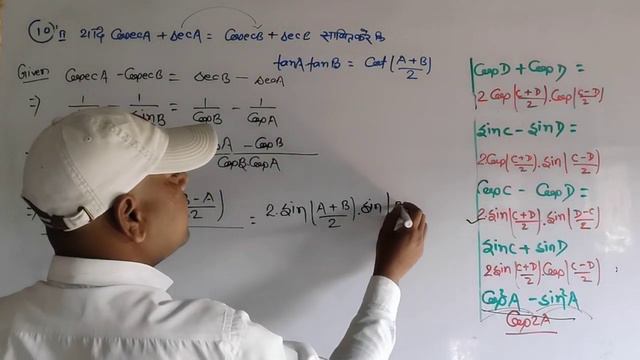 (10)'n यदि CosecA + SecA = CosecB + SecB साबित करें कि
tanA tanB = Cot(A+B/2)
Given CosecA - CosecB = SecB - SecA
=> 1/ - 1/SinB = 1/CosB - 1/CosA
A - CosB / CosB.CosA
=> B-A/2) = 2.Sin(A+B/2).Sin(
CosD + CosD =
2Cos(C+D/2).Cos(C-D/2)
SinC - SinD =
2Cos(C+D/2).Sin(C-D/2)
CosC - CosD =
2.Sin(C+D/2).Sin(D-C/2)
SinC + SinD
2Sin(C+D/2).Cos(C-D/2)
Cos²A - Sin²A
Cos2A